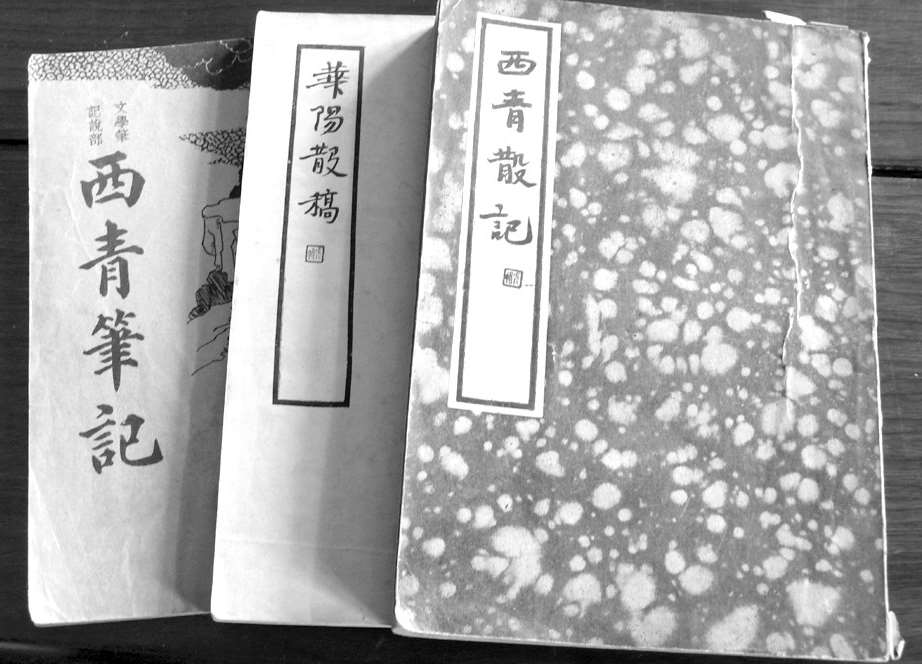 西青散記
華陽散稿
文學筆
記說部
西青筆記